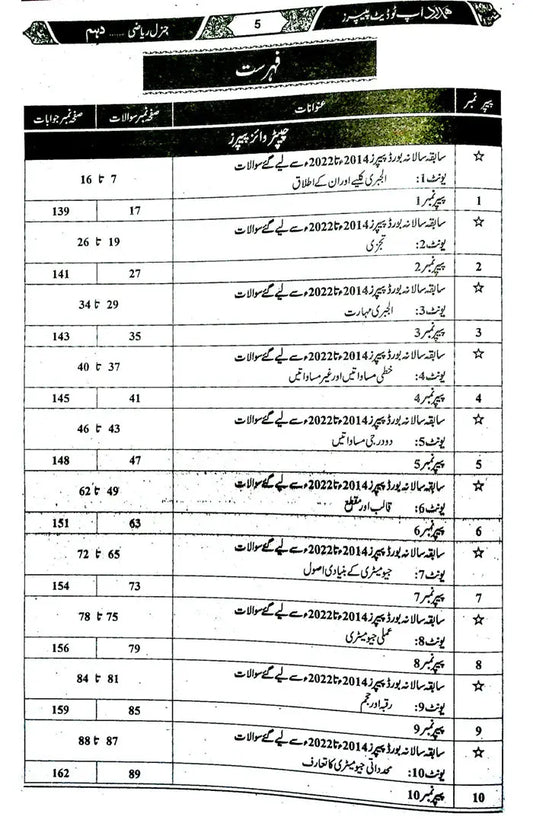 ہمدرد اپ ٹو ڈیٹ پیپرز 5 جنرل ریاضی ...... دہم
فہرست
پیپر نمبر عنوانات صفحہ نمبر سوالات صفحہ نمبر جوابات
چیپٹر وائز پیپرز
☆ سابقہ سالانہ بورڈ پیپرز 2014ء تا 2022ء سے لیے گئے سوالات
یونٹ 1: الجبری کلیے اور ان کے اطلاق 7 تا 16
1 پیپر نمبر 1 17 139
☆ سابقہ سالانہ بورڈ پیپرز 2014ء تا 2022ء سے لیے گئے سوالات
یونٹ 2: تجزی 19 تا 26
2 پیپر نمبر 2 27 141
☆ سابقہ سالانہ بورڈ پیپرز 2014ء تا 2022ء سے لیے گئے سوالات
یونٹ 3: الجبری مہارت 29 تا 34
3 پیپر نمبر 3 35 143
☆ سابقہ سالانہ بورڈ پیپرز 2014ء تا 2022ء سے لیے گئے سوالات
یونٹ 4: خطی مساواتیں اور غیر مساواتیں 37 تا 40
4 پیپر نمبر 4 41 145
☆ سابقہ سالانہ بورڈ پیپرز 2014ء تا 2022ء سے لیے گئے سوالات
یونٹ 5: دو درجی مساواتیں 43 تا 46
5 پیپر نمبر 5 47 148
☆ سابقہ سالانہ بورڈ پیپرز 2014ء تا 2022ء سے لیے گئے سوالات
یونٹ 6: قالب اور مقطع 49 تا 62
6 پیپر نمبر 6 63 151
☆ سابقہ سالانہ بورڈ پیپرز 2014ء تا 2022ء سے لیے گئے سوالات
یونٹ 7: جیومیٹری کے بنیادی اصول 65 تا 72
7 پیپر نمبر 7 73 154
☆ سابقہ سالانہ بورڈ پیپرز 2014ء تا 2022ء سے لیے گئے سوالات
یونٹ 8: عملی جیومیٹری 75 تا 78
8 پیپر نمبر 8 79 156
☆ سابقہ سالانہ بورڈ پیپرز 2014ء تا 2022ء سے لیے گئے سوالات
یونٹ 9: رقبہ اور حجم 81 تا 84
9 پیپر نمبر 9 85 159
☆ سابقہ سالانہ بورڈ پیپرز 2014ء تا 2022ء سے لیے گئے سوالات
یونٹ 10: محدداتی جیومیٹری کا تعارف 87 تا 88
10 پیپر نمبر 10 89 162